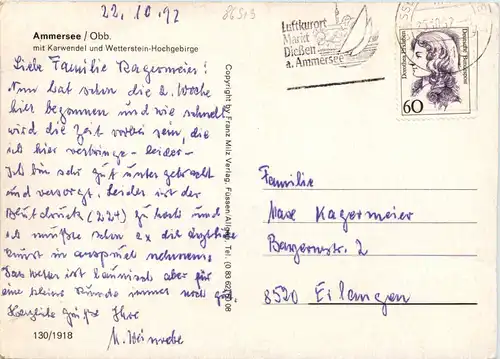 22.10.92
86513
Ammersee / Obb.
mit Karwendel und Wetterstein-Hochgebirge
Liebe Familie Bagermeier!
Nun hat schon die 2. Woche
hier begonnen und wie schnell
wird die Zeit vorbei sein, die
ich hier verbringe - leider -
Ich bin sehr gut untergebracht
und versorgt. Leider ist der
Blutdruck (224) zu hoch und
ich mußte schon 2x die ärztliche
Kunst in anspruch nehmen.
Das Wetter ist launisch aber für
eine kleine Runde immer noch gut
Herzliche Grüße Ihre
130/1918
Copyright by Franz Milz Verlag, Füssen/Allgäu, Tel. (0 83 62)
Luftkurort
Markt
Dießen
a. Ammersee
Dorothea Erxleben
Deutsche Bundespost
60
Familie
Max Kagermeier
8520 Erlangen